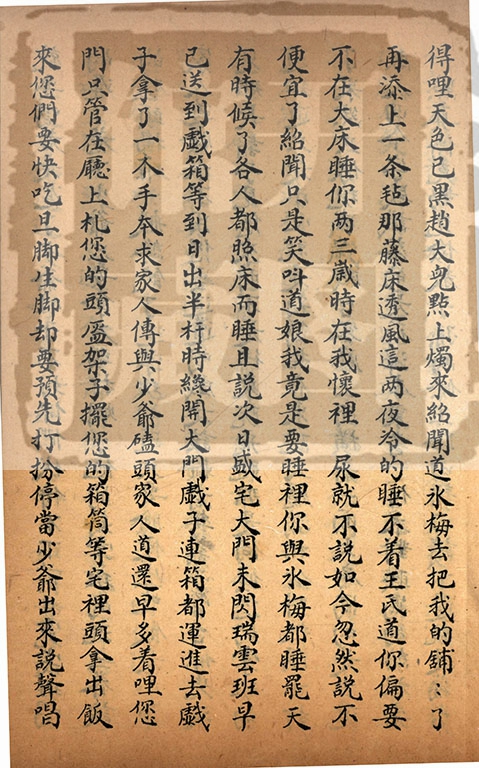 得哩天色已黑趙大兒點上燭來紹聞道氷梅去把我的舖〻了
再添上一条毡那藤床透風這两夜冷的睡不着王氏道你偏要
不在大床睡你两三嵗時在我懷裡尿就不說如今忽然說不
便宜了紹聞只是笑呌道娘我竟是要睡裡你與氷梅都睡罷天
有時候了各人都照床而睡且說次日盛宅大門未閃瑞雲班早
已送到戲箱等到日出半杆時纔開大門戲子連箱都運進去戲
子拿了一个手夲求家人傳與少爺磕頭家人道還早多着哩您
門只管在廳上札您的頭盔架子擺您的箱筒等宅裡頭拿出飯
來您們要快吃旦脚生脚却要預先打扮停當少爺出來說聲唱